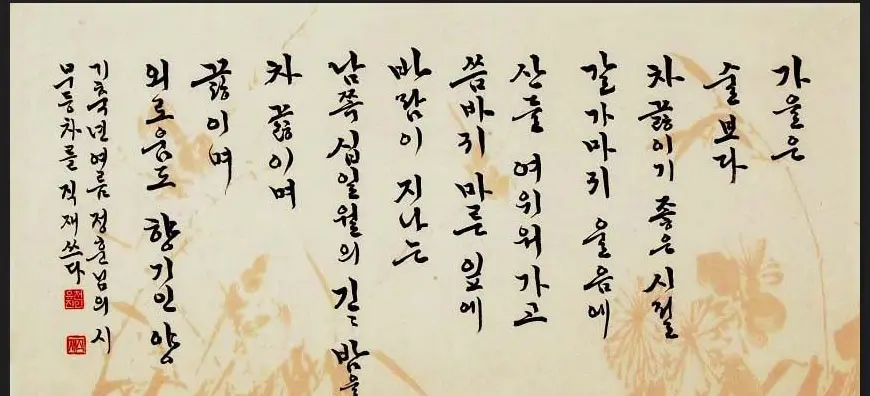 가을은
술 보다
차 끓이기 좋은 시절
갈가마귀 울음에
산들 여위워 가고
씀바귀 마른 잎에
바람이 지나는
남쪽 십일월의 긴 밤을
차 끓이며
끓이며
외로움도 향기인 양
기축년 여름 정훈님의 시
무등차를 직재 쓰다